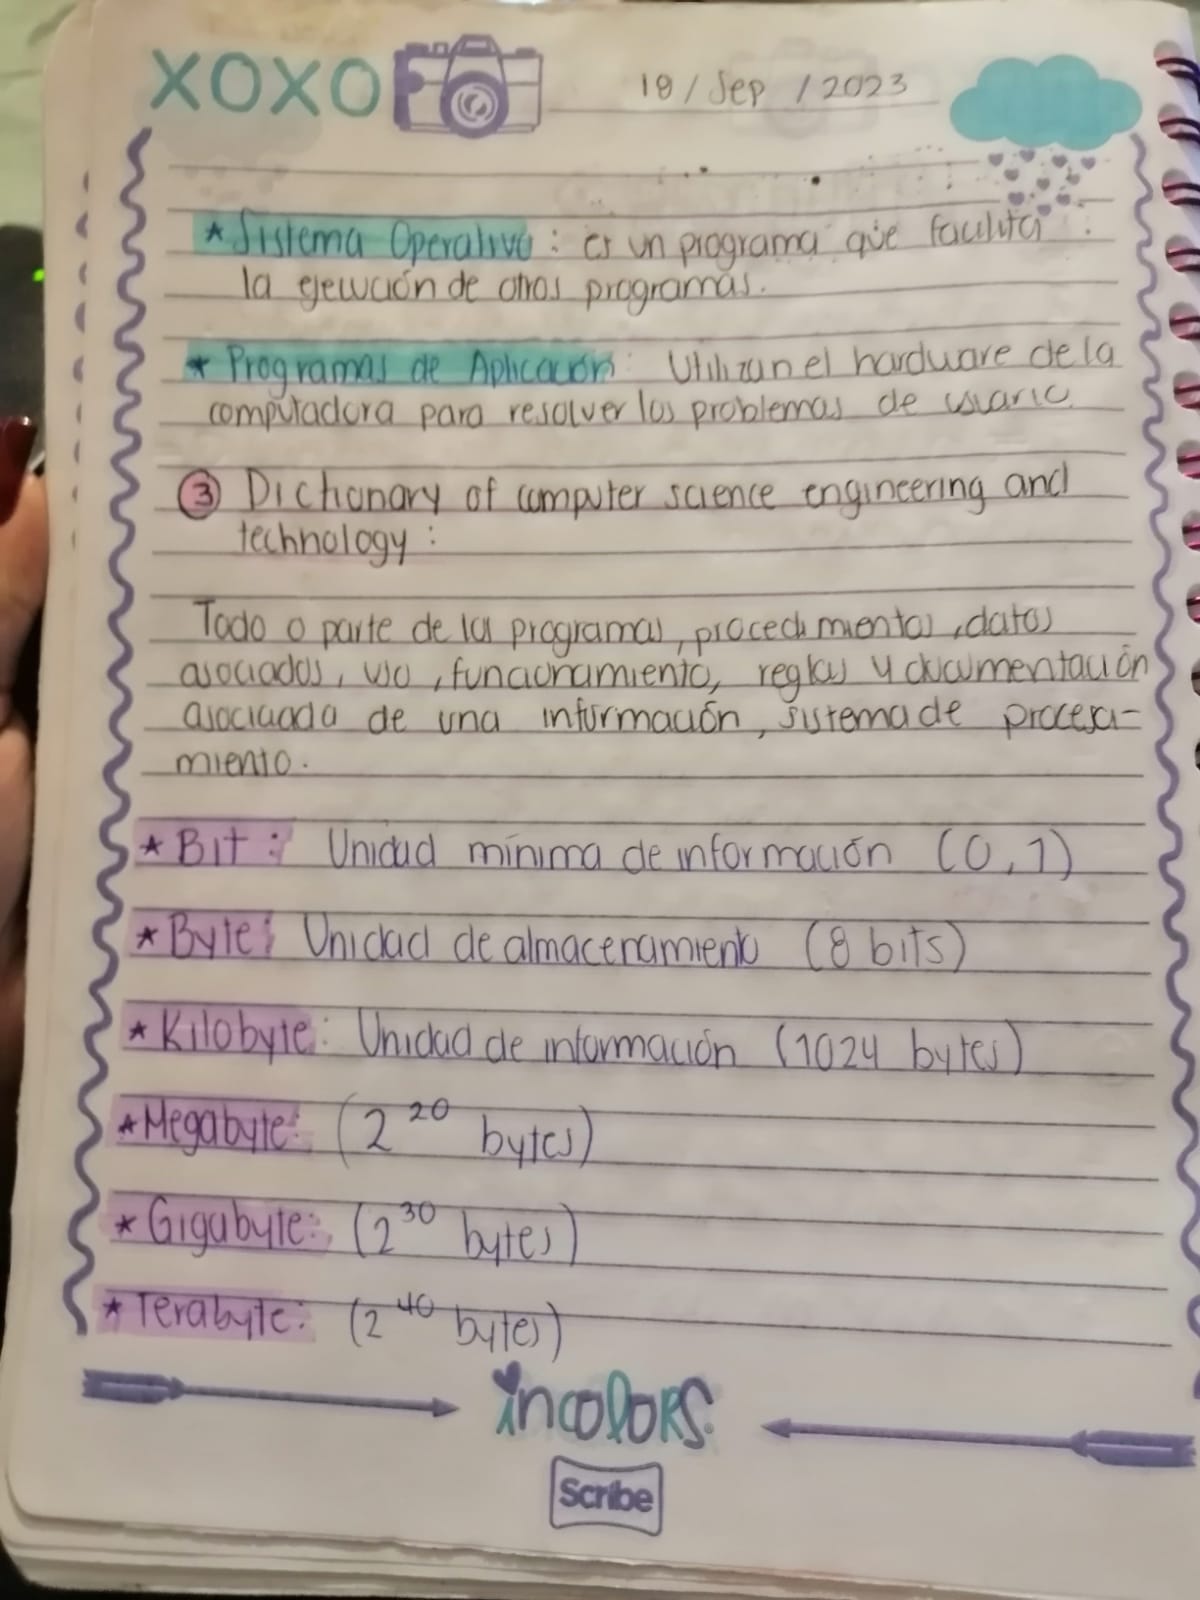 XOXO
18/Sep/2023
* Sistema Operativo: es un programa que facilita
la ejecución de otros programas.
* Programas de Aplicación: Utilizan el hardware de la
computadora para resolver los problemas de usuario.
③ Dictionary of computer science engineering and
technology:
Todo o parte de los programas, procedimientos, datos
asociados, uso, funcionamiento, reglas y documentación
asociada de una información, sistema de procesa-
miento.
* Bit: Unidad mínima de información (0,1)
* Byte: Unidad de almacenamiento (8 bits)
* Kilobyte: Unidad de información (1024 bytes)
* Megabyte: (2²⁰ bytes)
* Gigabyte: (2³⁰ bytes)
* Terabyte: (2⁴⁰ bytes)
incolors
Scribe